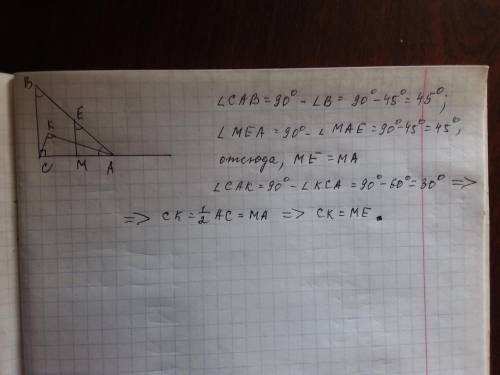 B
E
K
C M A
∠CAB = 90° - ∠B = 90° - 45° = 45°;
∠MEA = 90° - ∠MAE = 90° - 45° = 45°,
отсюда, ME = MA
∠CAK = 90° - ∠KCA = 90° - 60° = 30° =>
=> CK = 1/2 AC = MA => CK = ME.